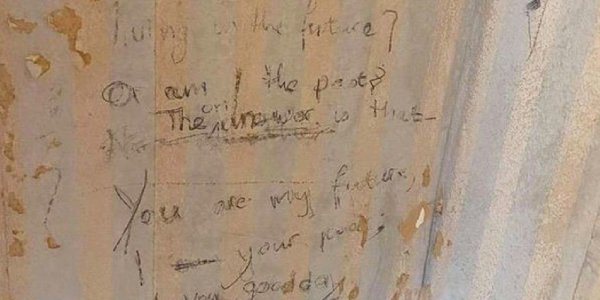 living in the future?
Or am I the past?
The answer is that
You are my future,
I your past,
you good day